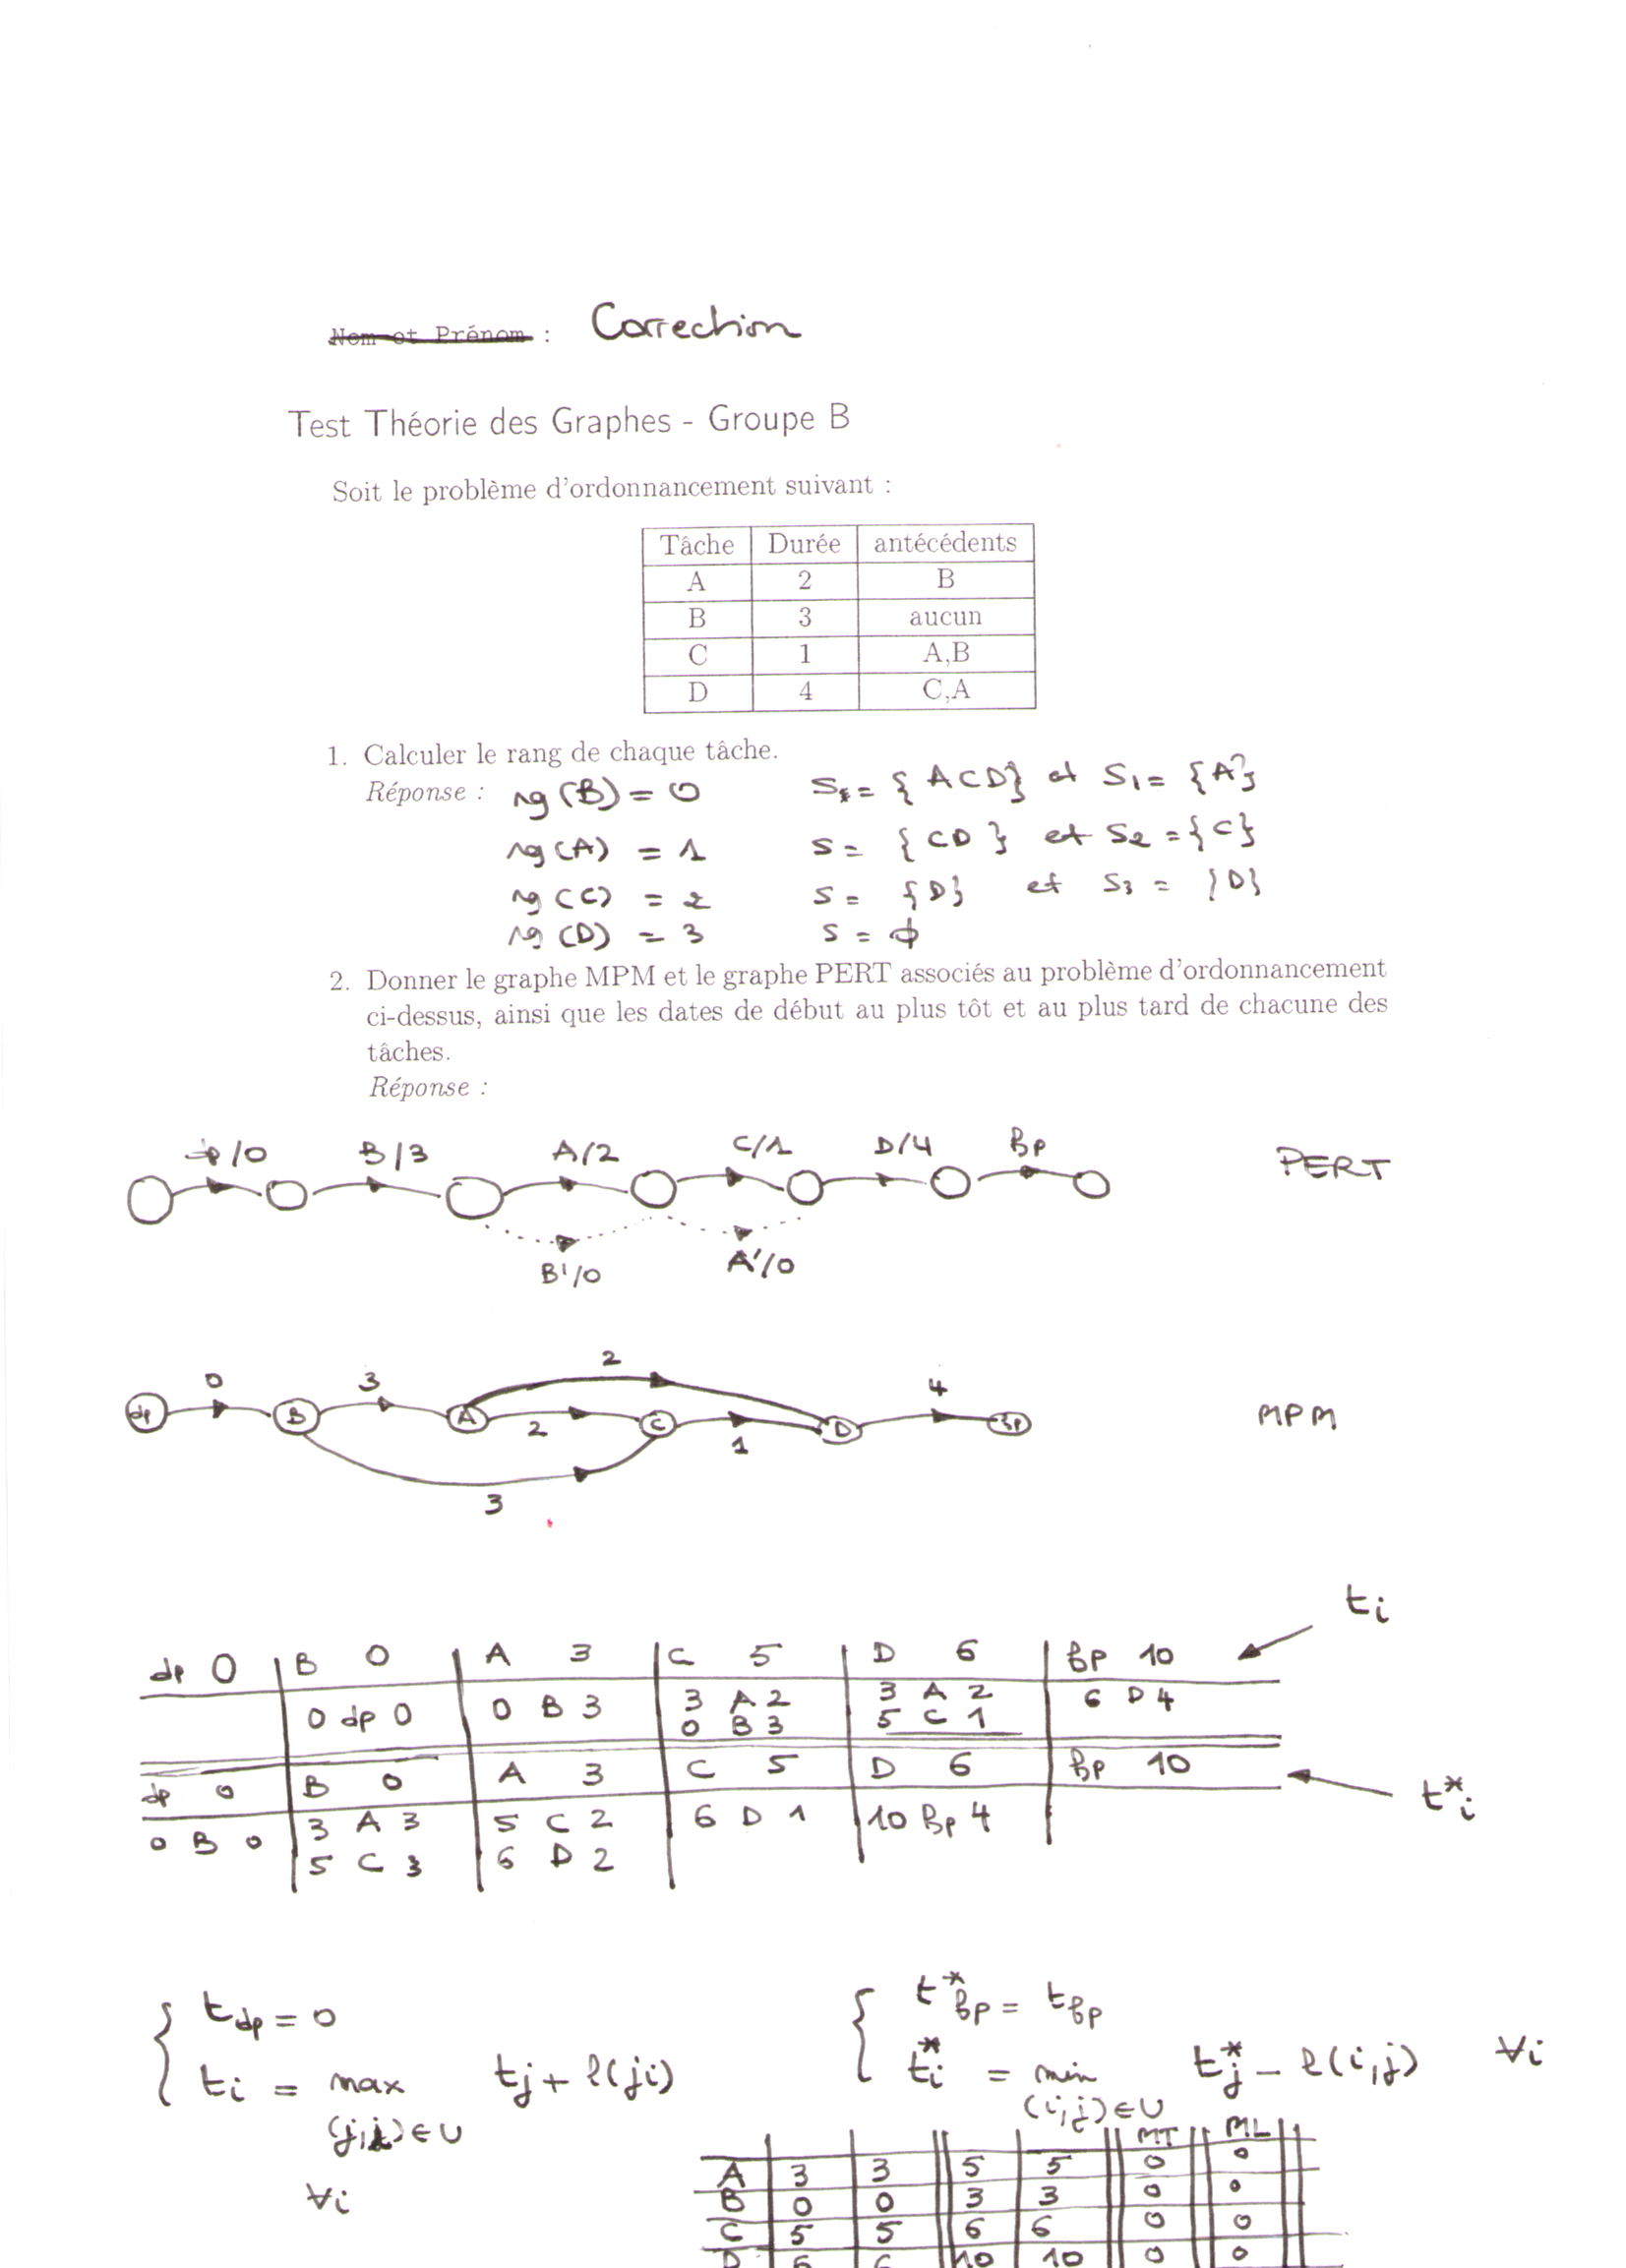 Nom et Prénom : Correction
Test Théorie des Graphes - Groupe B
Soit le problème d'ordonnancement suivant :
Tâche Durée antécédents
A 2 B
B 3 aucun
C 1 A,B
D 4 C,A
1. Calculer le rang de chaque tâche.
Réponse : rg(B) = 0 S = { A C D } et S1 = {A}
rg(A) = 1 S = { C D } et S2 = {C}
rg(C) = 2 S = {D} et S3 = {D}
rg(D) = 3 S = ∅
2. Donner le graphe MPM et le graphe PERT associés au problème d'ordonnancement
ci-dessus, ainsi que les dates de début au plus tôt et au plus tard de chacune des
tâches.
Réponse :
dp/0 B/3 A/2 C/1 D/4 Bp PERT
B'/0 A'/0
0 3 2 4
dp B A C D Bp MPM
2 1
3
ti
dp 0 B 0 A 3 C 5 D 6 Bp 10
0 dp 0 0 B 3 3 A 2 3 A 2 6 D 4
0 B 3 5 C 1
dp 0 B 0 A 3 C 5 D 6 Bp 10
t*i
0 B 0 3 A 3 5 C 2 6 D 1 10 Bp 4
5 C 3 6 D 2
tdp = 0 t*Bp = tBp
ti = max tj + l(ji) t*i = min t*j - l(i,j) ∀i
(j,i) ∈ U (i,j) ∈ U
∀i
MT ML
A 3 3 5 5 0 0
B 0 0 3 3 0 0
C 5 5 6 6 0 0
D 6 6 10 10 0 0